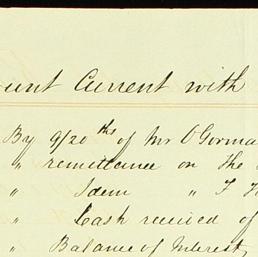 unt Current with
By 9/20ths of Mr O'Gorma
" remittance on the
" Idem " T H
" Cash received of
" Balance of Interest,